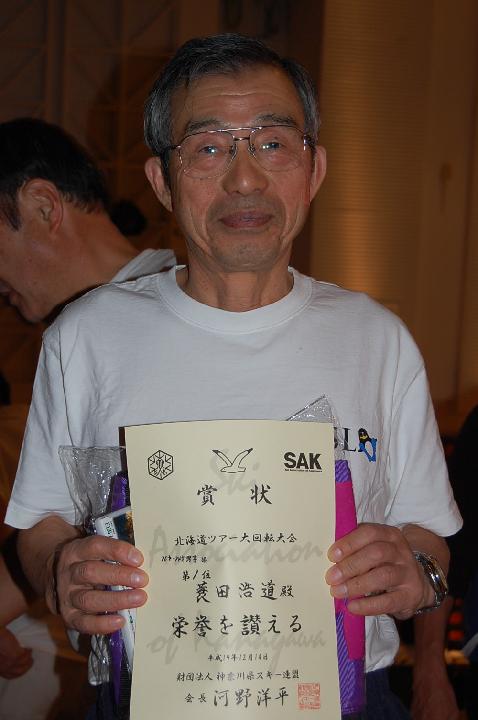 SAK
Ski
賞状
北海道ツアー大回転大会
第1位
菱田浩道殿
Association
of Kanagawa
栄誉を讃える
平成19年12月16日
財団法人 神奈川県スキー連盟
会長 河野洋平